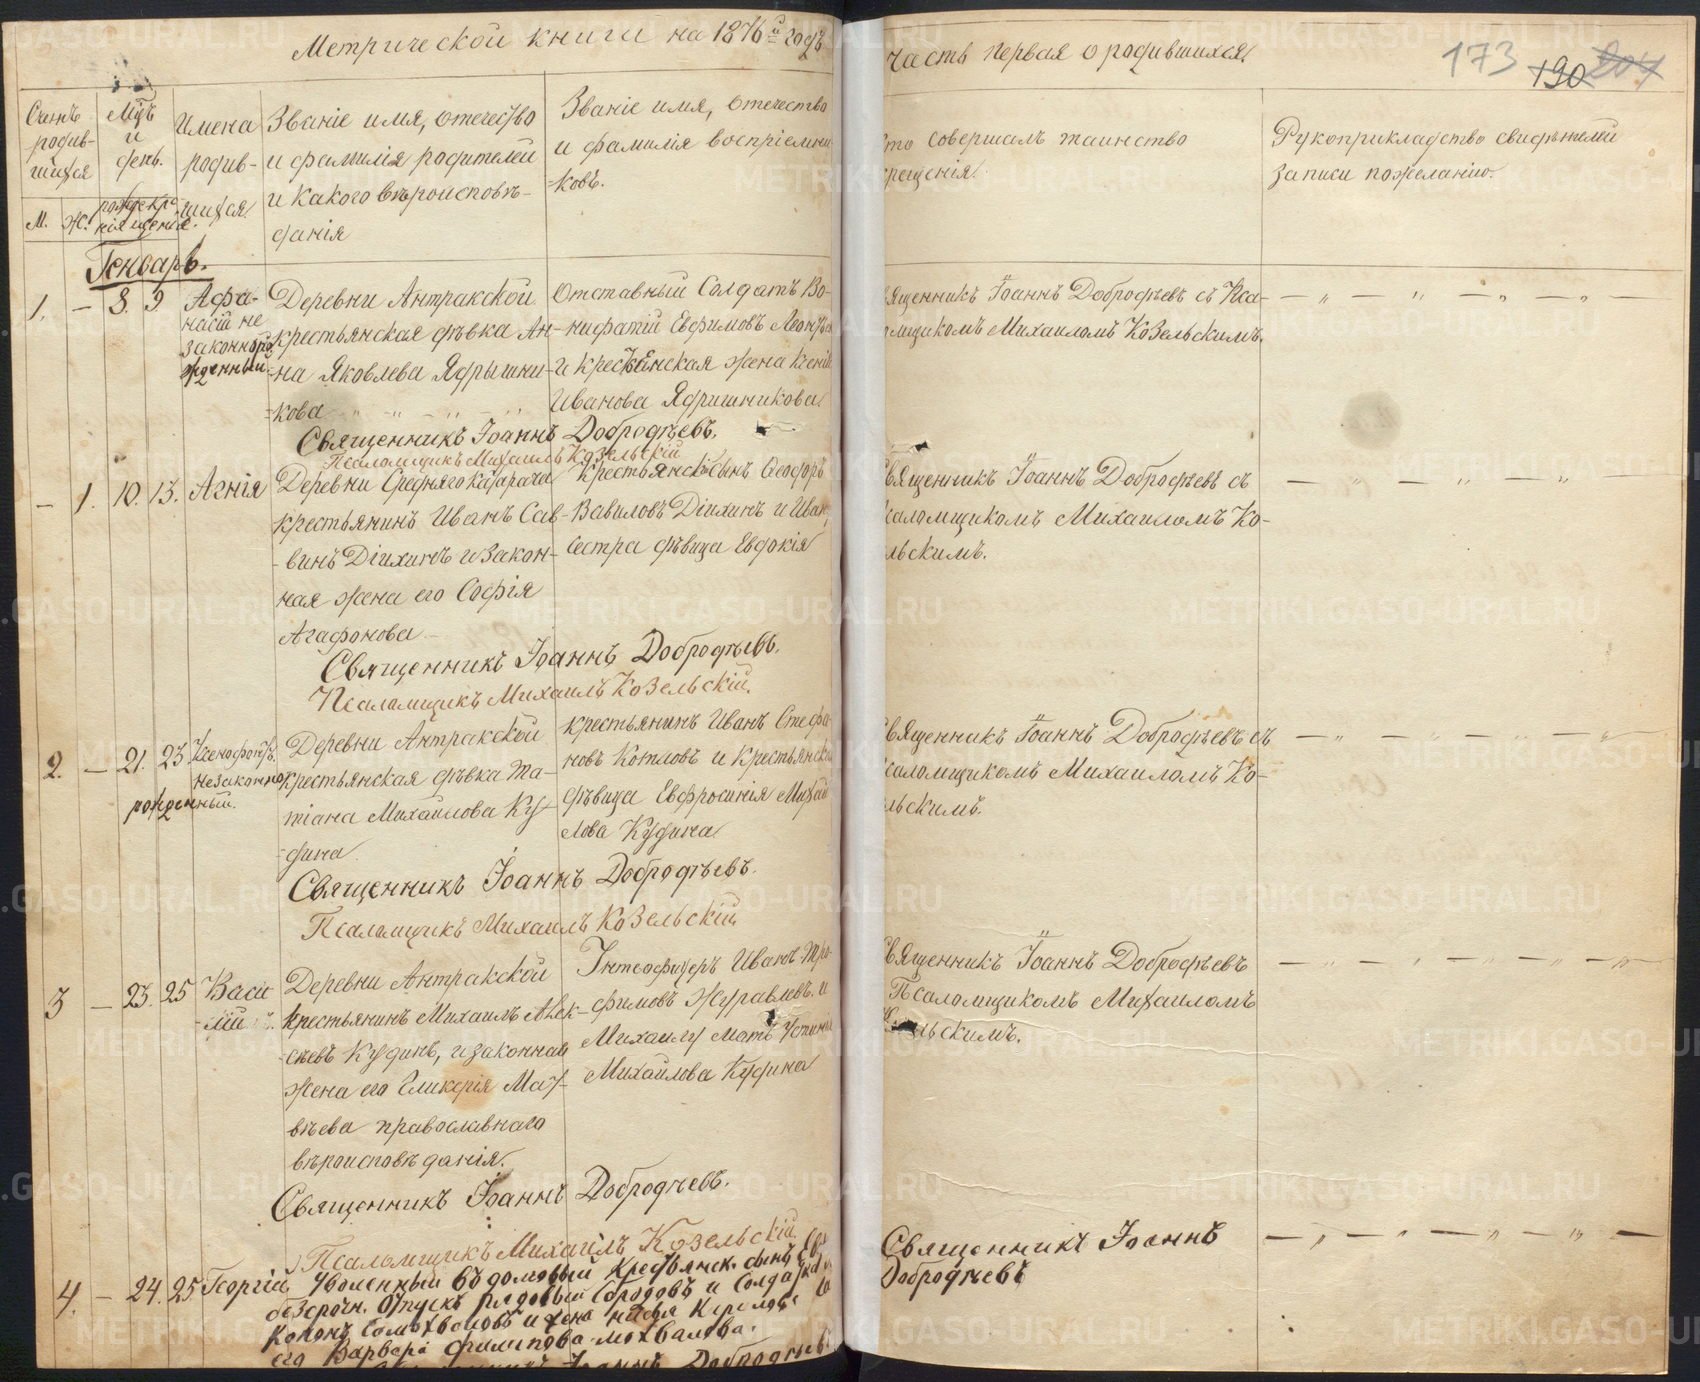 Метрической книги на 1876й годъ
часть первая о родившихся
173
190
204
Счетъ родив-шихся
М. Ж.
Мѣсяцъ и день.
рожденія крещенія.
Имена родив-шихся.
Званіе имя, отечество
и фамилія родителей
и какого вѣроисповѣ-
данія
Званіе имя, отечество
и фамилія воспріемни
-ковъ.
Кто совершалъ таинство
крещенія.
Рукоприкладство свидѣтелей
записи по желанію.
Генварь.
1. — 8. 9 Афа-
насій не
законнорож
жденный
Деревни Антракской
крестьянская дѣвка Ан-
-на Яковлева Ядрышни-
-кова
Отставный Солдатъ Во-
-нифатій Евфимовъ
и крестьянская жена Ксенія
Иванова Ядришникова
Священникъ Іоаннъ Добродѣевъ съ Пса-
ломщикомъ Михаиломъ Козельскимъ.
Священникъ Іоаннъ Добродѣевъ.
Псаломщикъ Михаилъ Козельскій
— 1. 10. 13. Агнія
Деревни Средняго
крестьянинъ Иванъ Сав-
-винъ Діихинъ и закон-
ная жена его Софія
Агафонова
Крестьянскій сынъ Ѳеодоръ
Вавиловъ Діихинъ и
сестра дѣвица Евдокія
Священникъ Іоаннъ Добродѣевъ съ
Псаломщикомъ Михаиломъ Ко-
зельскимъ.
Священникъ Іоаннъ Добродѣевъ.
Псаломщикъ Михаилъ Козельскій.
2. — 21. 23 Ксенофонтъ.
незаконно
рожденный.
Деревни Антракской
крестьянская дѣвка Та-
тіана Михаилова Ку-
-дина
крестьянинъ Иванъ Стефа-
новъ Котловъ и крестьянская
дѣвица Евфросинія Михаи
лова Кудина
Священникъ Іоаннъ Добродѣевъ съ
Псаломщикомъ Михаиломъ Ко-
зельскимъ.
Священникъ Іоаннъ Добродѣевъ.
Псаломщикъ Михаилъ Козельскій
3 — 23. 25 Васи
-лій
Деревни Антракской
крестьянинъ Михаилъ Алек-
-сѣевъ Кудинъ, и законная
жена его Гликерія Мат-
вѣева православнаго
вѣроисповѣданія.
Унтеофицеръ Иванъ Тро-
фимовъ Журавлевъ и
Михаилу мать Устинія
Михайлова Кудина
Священникъ Іоаннъ Добродѣевъ
Псаломщикомъ Михаиломъ
Козельскимъ.
Священникъ Іоаннъ Добродѣевъ.
Псаломщикъ Михаилъ Козельскій
4. — 24. 25 Георгій
Уволенный въ домовый
безсрочн. отпускъ рядовый
и жена
его Варвара Филипова
Крестьянск. сынъ
и Солдатка
Священникъ Іоаннъ
Добродѣевъ
Іоаннъ Добродѣевъ
METRIKI.GASO-URAL.RU